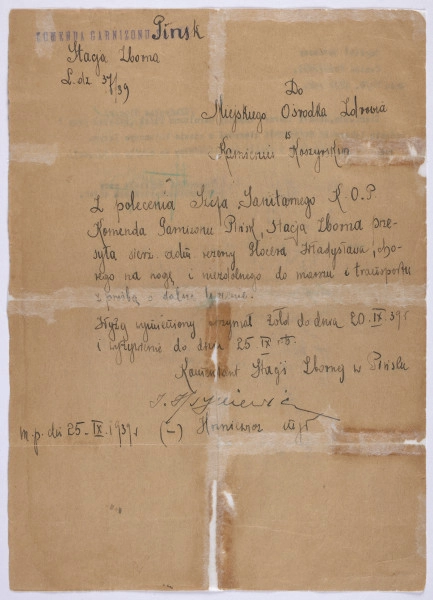 KOMENDA GARNIZONU Pińsk
Stacja Zborna
L. dz 37/39
Do
Miejskiego Ośrodka Zdrowia
w
Kamieniu Koszyrskim
Z polecenia Szefa Sanitarnego K.O.P.
Komenda Garnizonu Pińsk, Stacja Zborna prze-
syła rezerwy Władysława, cho-
rego na nogę i niezdolnego do marszu i transportu
z prośbą o dalsze leczenie.
Wyżej wymieniony otrzymał żołd do dnia 20.IX 39r
i wyżywienie do dnia 25.IX
Komendant Stacji Zbornej w Pińsku
m.p. dn 25.IX.1939r (–)